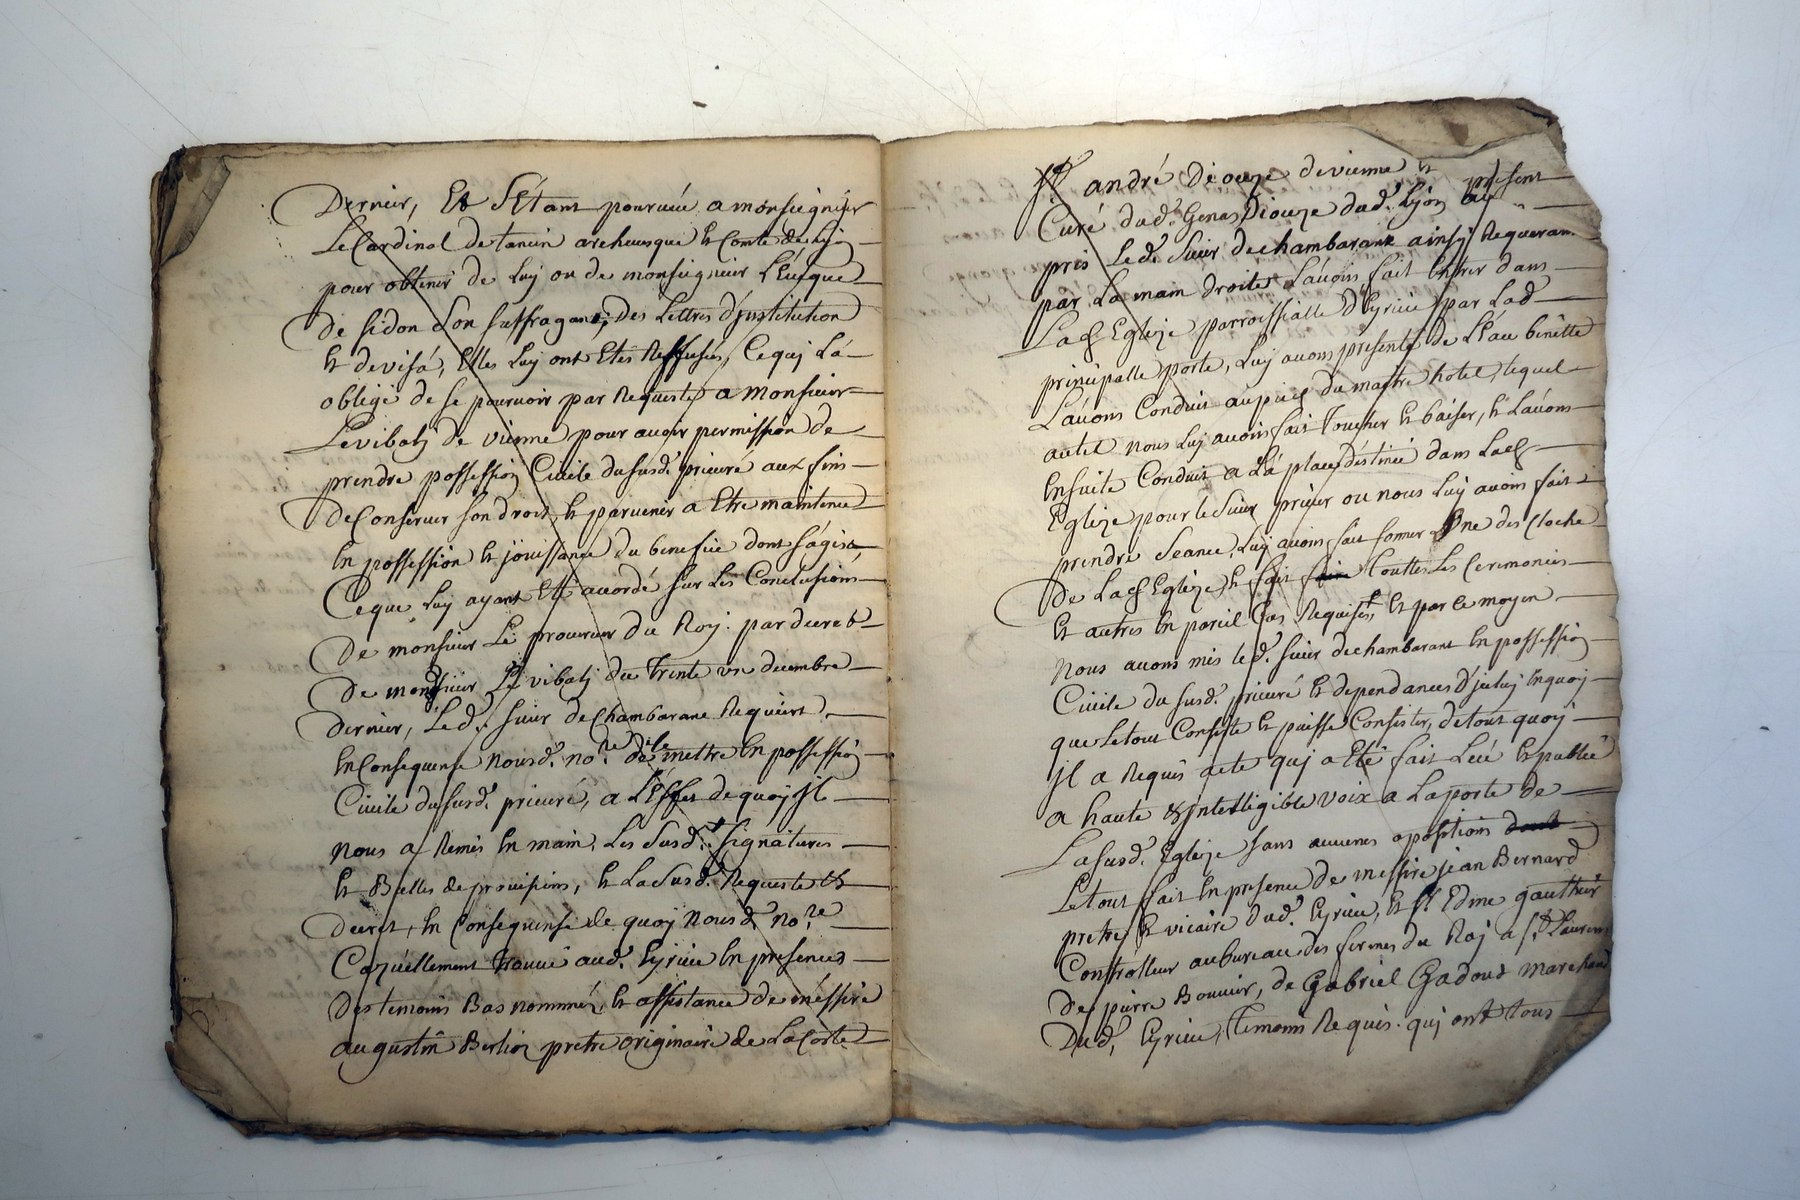 Dernier, Et S'Étant pourvüe a monseigneur
Le Cardinal de tancin archeusque et Comte de Lyon
pour obtenir de Luy ou de monseigneur L'Euêque
de sidon son suffragant, Des Lettres d'institution
et de visá, Elles Luy ont Etés Reffusés, Ce quj L'a
obligé de se pourvoir par Requeste a Monsieur
Le vibalj de vienne pour auoir permission de
prendre possession Ciuile du susd. prieuré aux fins
de Conseruer son droit, et paruenir a Etre maintenue
En possession et joüissance du benefice dont s'agist,
Ce que Luy ayant Eté accordé sur Les Conclusions
de monsieur Le procureur du Roy. par decret
de monsieur Le vibalj du Trente un decembre
dernier, Led. sieur de Chambarant Requiert
En Consequense nousd. no.re de Le mettre En possession
Ciuile du susd. prieuré, a L'Effet de quoy Jl
nous a Remis En main, Les susd. signatures
et Bulles de prouisions, et La susd. Requeste et
decret, En Consequense de quoy nousd. no.re
Cazüellement trouué aud. Eyrieu En presences
des temoins Bas nommés, et assistance de méssire
augustin Berlioz pretre originaire de La Coste
andré Diouze de vienne et present
Curé dud. Genas Diouze dud. Lyon
pris Led. sieur de chambarant ainsy Requerant
par La main droite, L'auons fait Entrer dans
Lad. Eglize parroissialle d'Eyrieu par Lad.
principalle porte, Luy auons presenté de L'Eau benitte
L'auons Conduit au pied du maitre hotel, lequel
autel nous Luy auons fait Toucher et baiser, et L'auons
Ensuite Conduit a La place déstinée dans Lad.
Eglize pour le sieur prieur ou nous Luy auons fait
prendre seance, Luy auons fait sonner Une des Cloche
de Lad. Eglize, et fait faire touttes Les Ceremonies
et autres En pareil Cas Requises, et par Ce moyen
nous auons mis led. sieur de chambarant En possession
Ciuile du susd. prieuré et dependances d'jceluj En quoj
que Le tout Consiste et puisse Consister, de tout quoy
Jl a Requis acte quj a Eté fait Leü et publié
a haute & Jntelligible voix a La porte de
La susd. Eglize sans aucunes opositions dont
Le tout fait En presence de messire jean Bernard
pretre et vicaire dud. Eyrieu, et sr. Edme gauthier
Controlleur au bureau des fermes du Roj a st. Laurens
de pierre Bouuier, de Gabriel Gadoud marchand
Dud. Eyrieu, Temoins Requis. quj ont tous